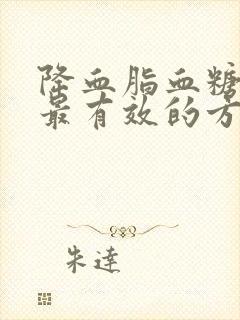 降血脂血糖
最有效的方
朱達